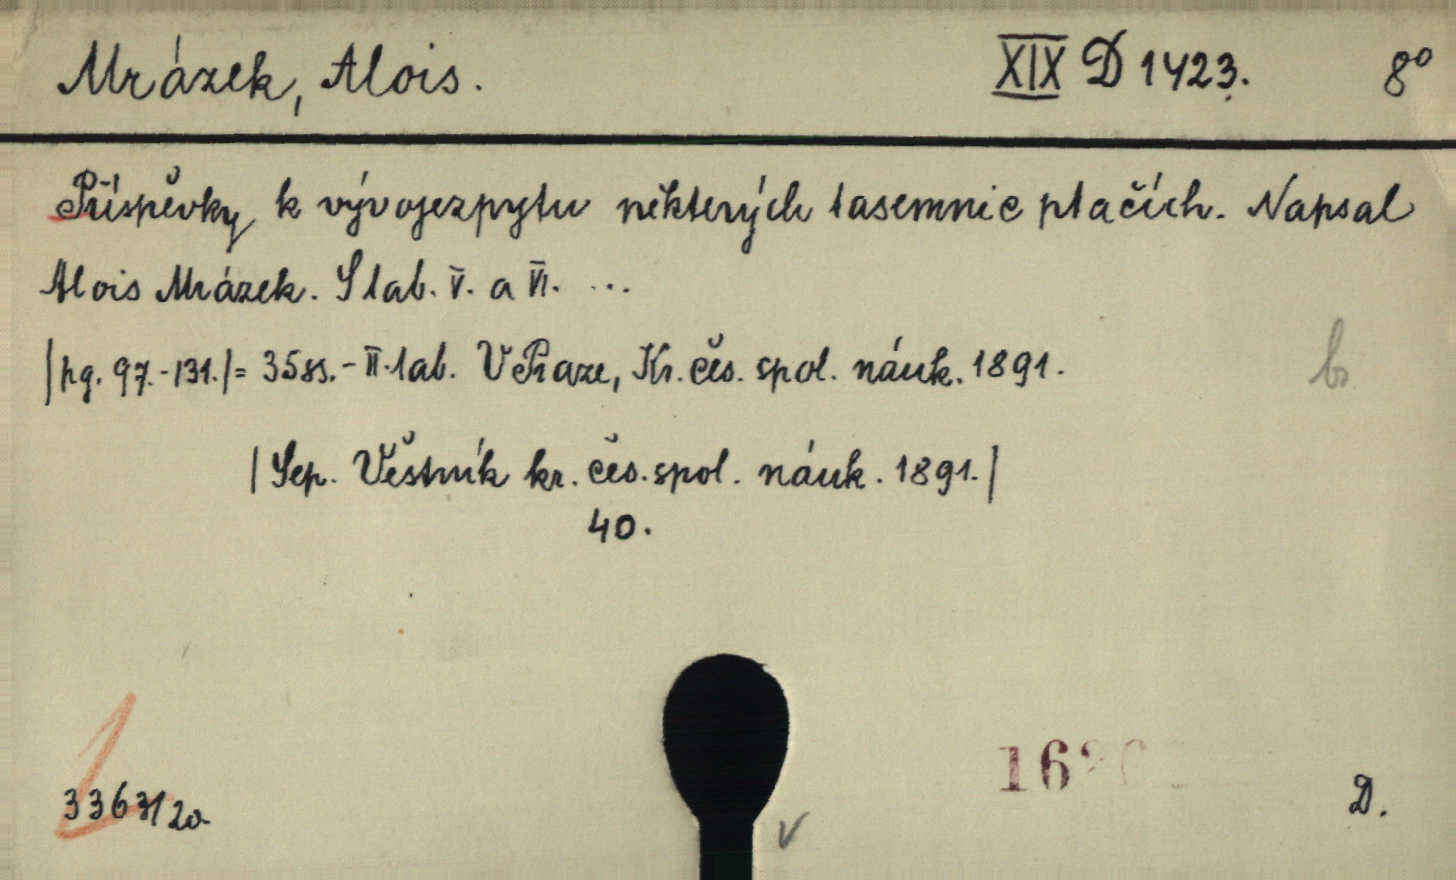 Mrázek, Alois. XIX D 1423. 8°
Příspěvky k vývojezpytu některých tasemnic ptačích. Napsal
Alois Mrázek. S tab. V. a VI. ...
|pg. 97.-131.|= 35 ss.- II. tab. V Praze, Kr. čes. spol. náuk. 1891.
|Sep. Věstník kr. čes. spol. náuk. 1891.|
40.
D.